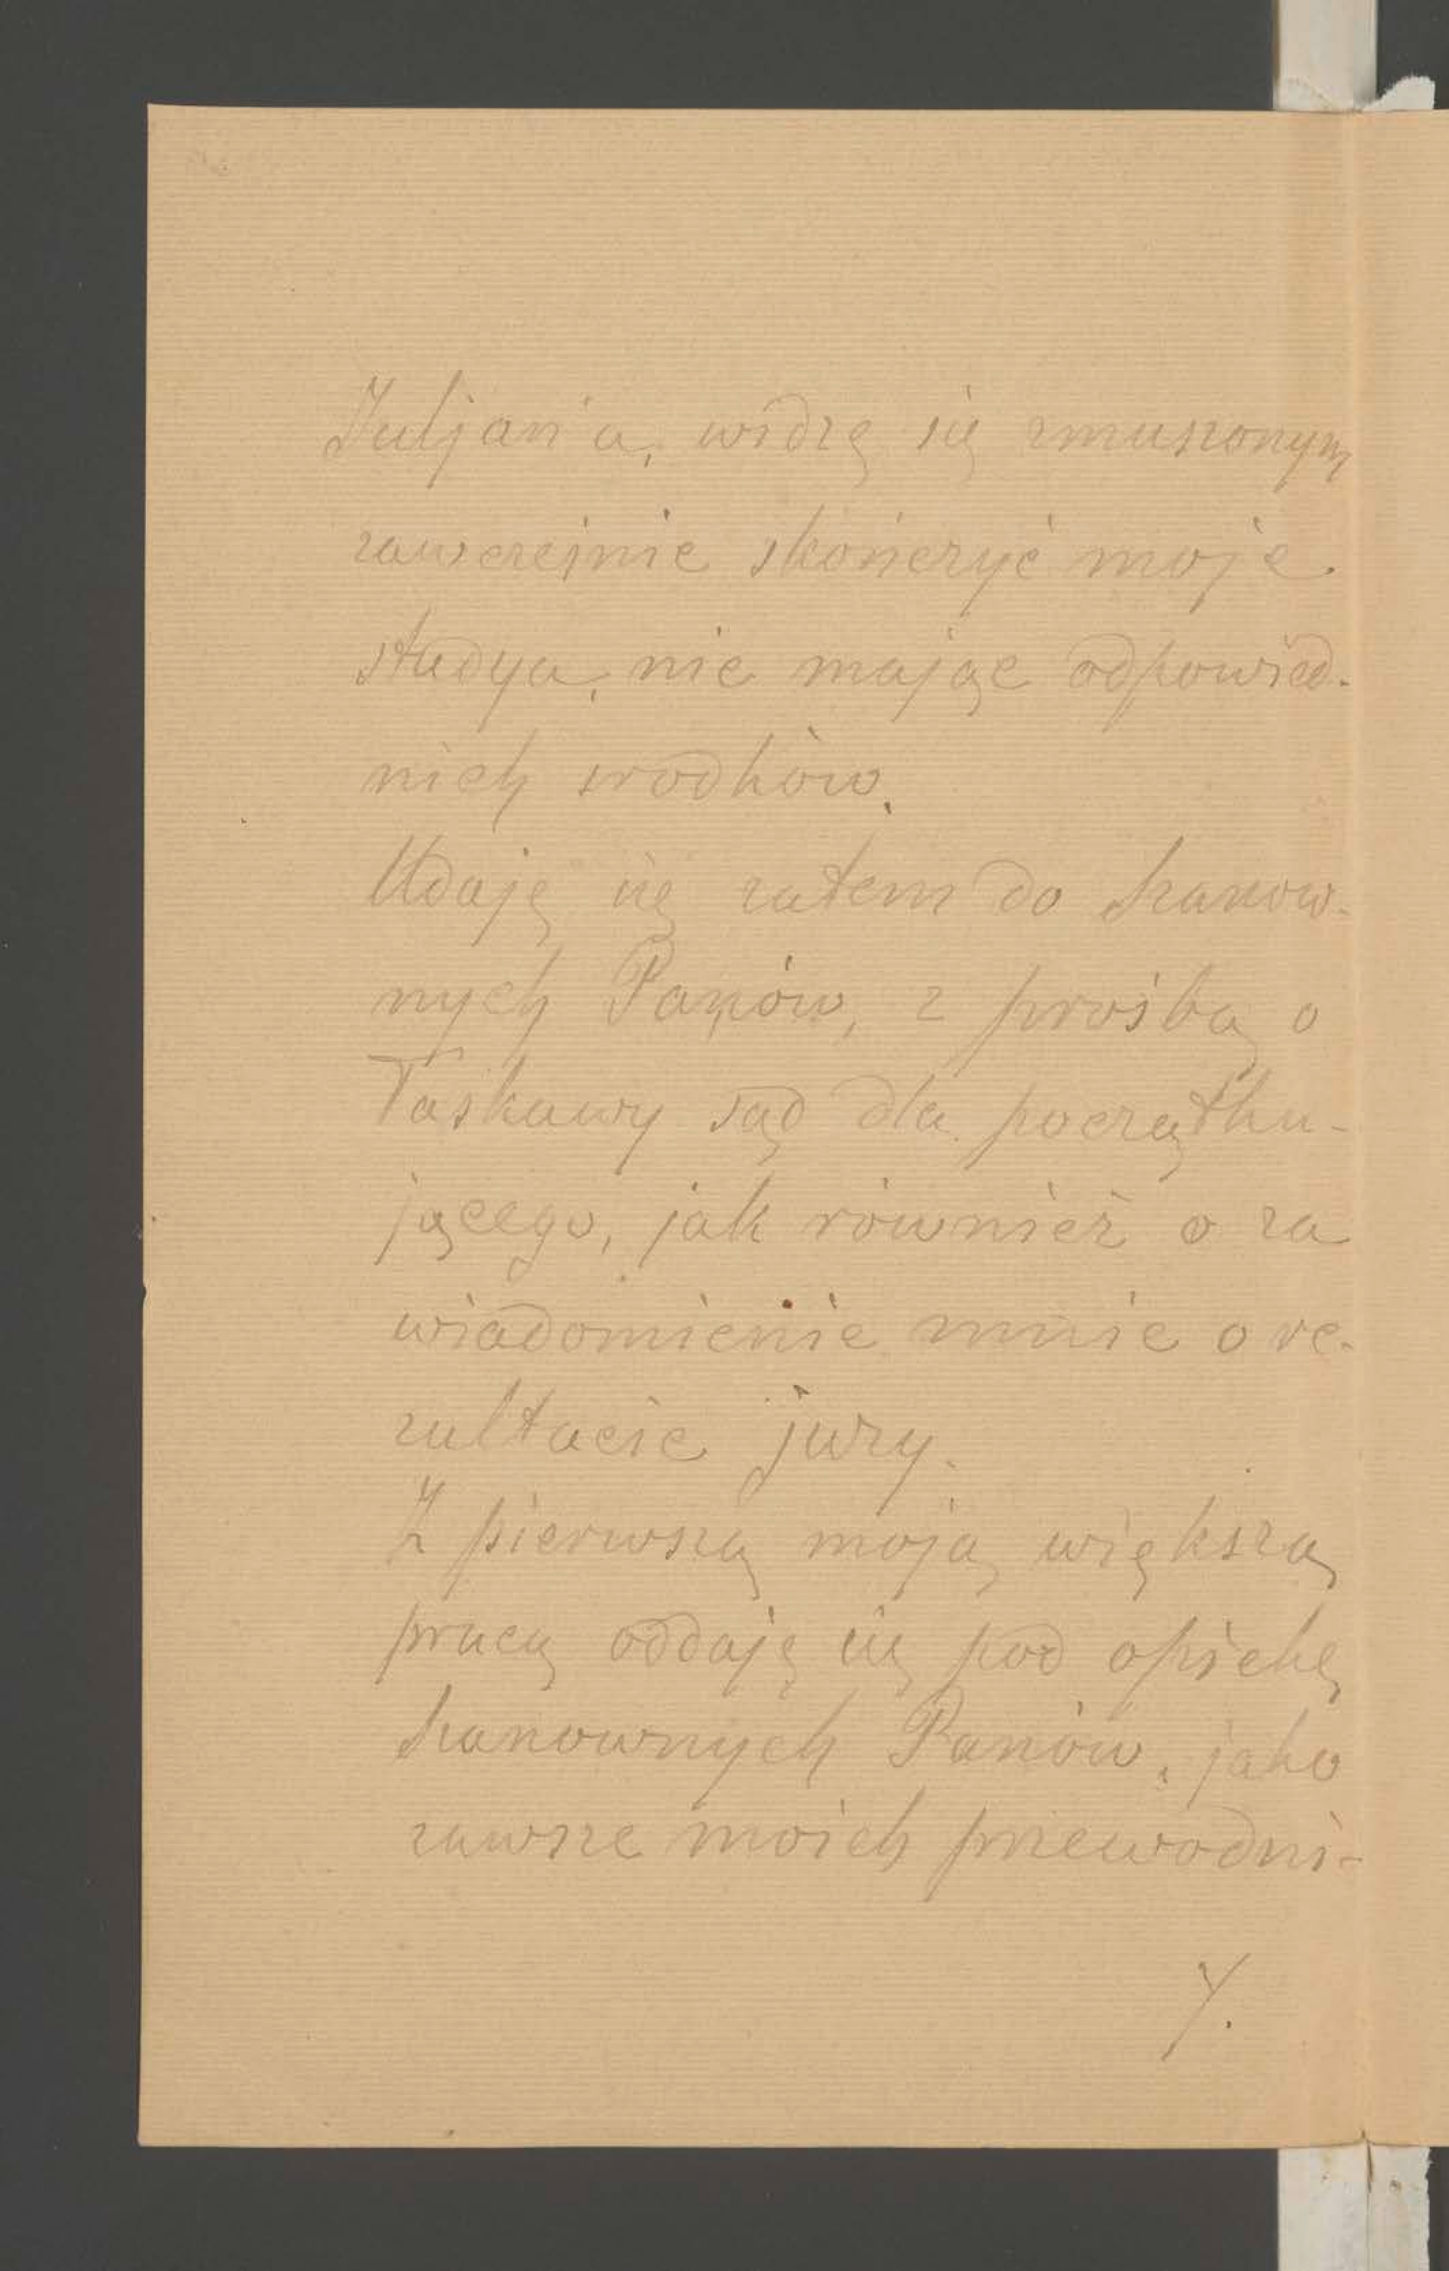 Juljan'a, widzę się zmuszonym
zawcześnie skończyć moje
studya, nie mając odpowied-
nich srodków.
Udaję się zatem do Szanow-
nych Panów, z prośbą o
łaskawy sąd dla początku-
jącego, jak również o za
wiadomienie mnie o re-
zultacie jury.
Z pierwszą moją większą
pracą oddaję się pod opiekę
Szanownych Panów, jako
zawsze moich przewodni-
/.